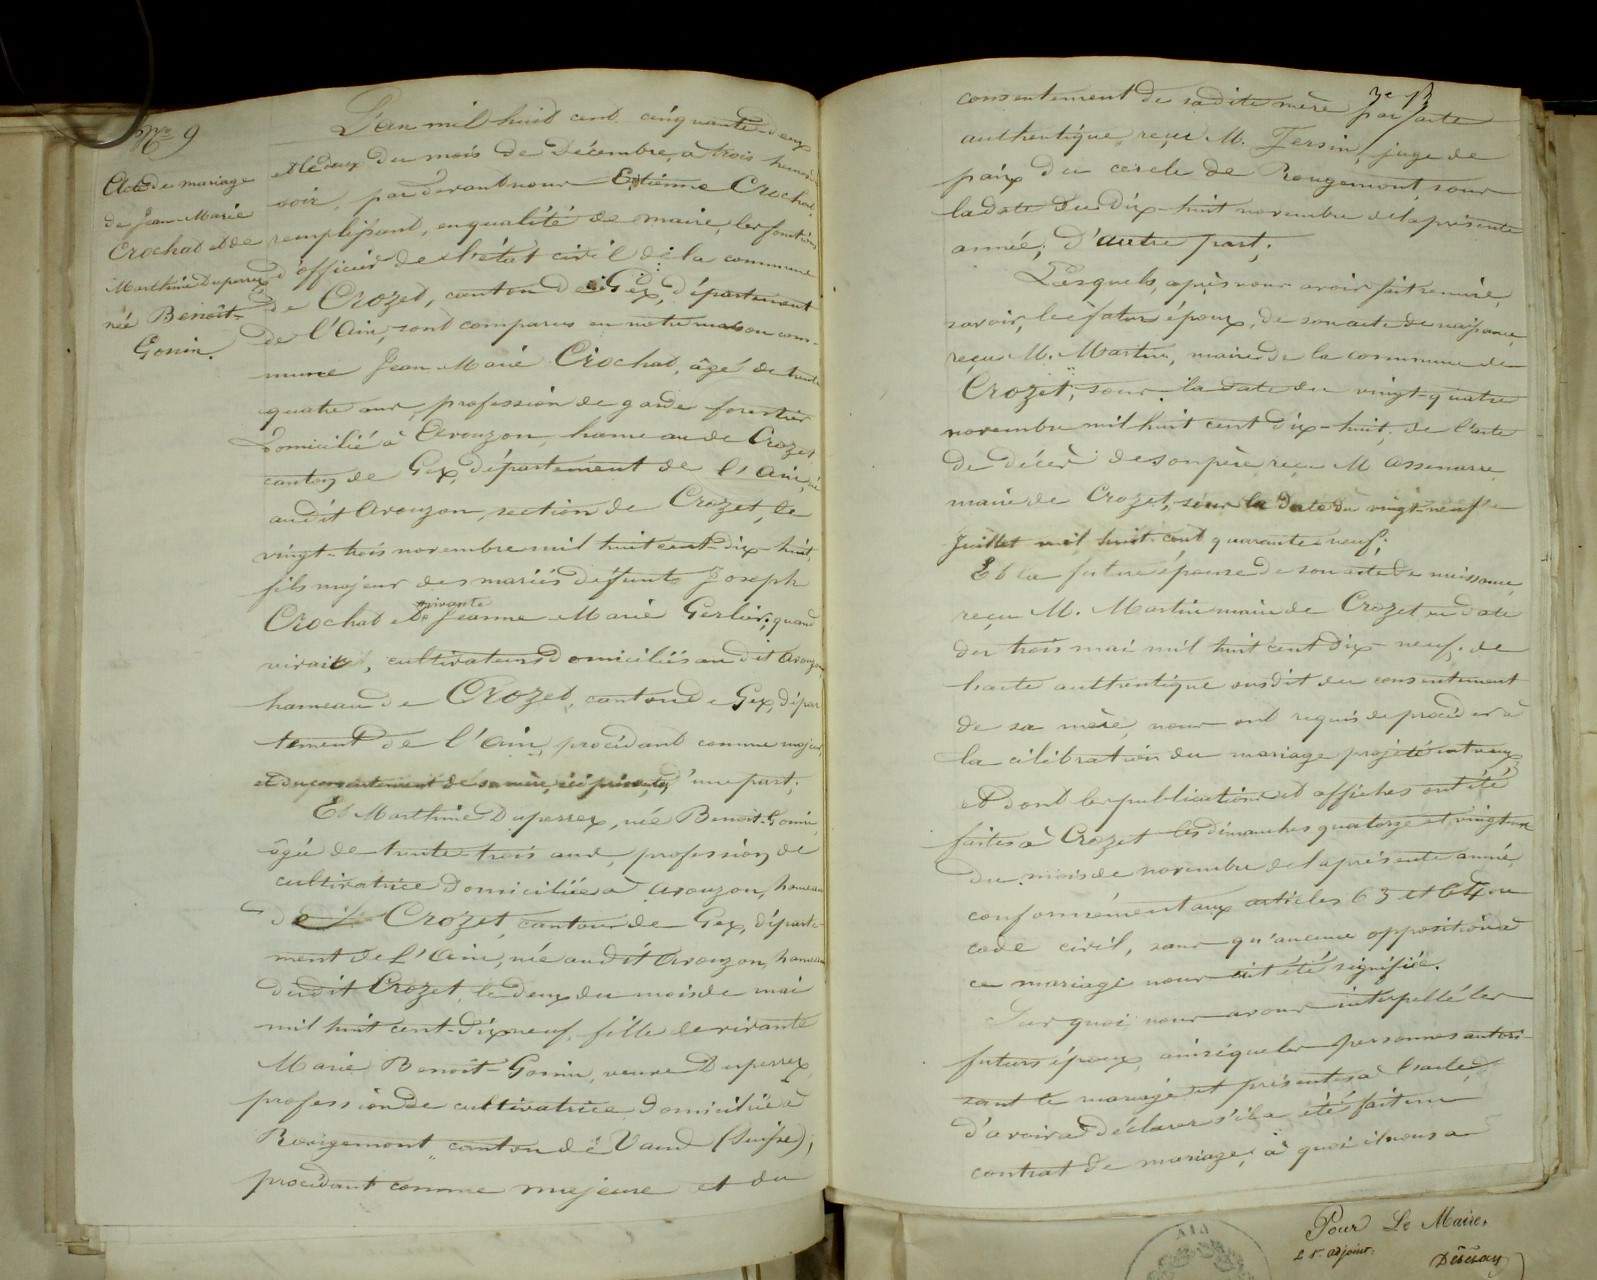 No 9
Acte de mariage
de Jean-Marie
Crochat et de
Marthine Duperrex
née Benoît-
Gonin.
L'an mil huit cent cinquante-deux
et le deux du mois de Décembre, à trois heures du
soir, par devant nous Etienne Crochat,
remplissant, en qualité de maire, les fonctions
d'officier de l'état civil de la commune
de Crozet, canton de Gex, département
de l'Ain, sont comparus en notre maison com-
mune Jean-Marie Crochat, âgé de trente
quatre ans, profession de garde forestier
domicilié à Avouzon, hameau de Crozet
canton de Gex, département de l'Ain, né
audit Avouzon, section de Crozet, le
vingt-trois novembre mil huit cent dix-huit,
fils majeur des mariés défunt Joseph
Crochat et vivante Jeanne-Marie Gerlier; quand
vivait, cultivateurs domiciliés audit Avouzon
hameau de Crozet, canton de Gex, dépar
tement de l'Ain, procédant comme majeur,
et du consentement de sa mère, ici présente, d'une part;
Et Marthine Duperrex, née Benoît-Gonin,
âgée de trente-trois ans, profession de
cultivatrice domiciliée à Avouzon, hameau
de Crozet, canton de Gex, départe-
ment de L'Ain, née audit Avouzon, hameau
dudit Crozet, le deux du mois de mai
mil huit cent-dix neuf, fille de vivante
Marie Benoît-Gonin, veuve Duperrex,
profession de cultivatrice domiciliée à
Rougemont, canton de Vaud (Suisse),
procédant comme majeure et du
consentement de sadite mère par acte
authentique, reçu M. Fersin, juge de
paix du cercle de Rougemont, sous
la date du dix-huit novembre de la présente
année, d'autre part;
Lesquels, après nous avoir fait remise,
savoir, le futur époux, de son acte de naissance,
reçu M. Martin, maire de la commune de
Crozet, sous la date du vingt-quatre
novembre mil huit cent dix-huit; de l'acte
de décès de son père, reçu M
maire de Crozet, sous la date du vingt-neuf
Juillet mil huit cent quarante neuf;
Et la future épouse de son acte de naissance,
reçu M. Martin maire de Crozet en date
du trois mai mil huit cent dix-neuf, de
l'acte authentique susdit du consentement
de sa mère, nous ont requis de procéder à
la célébration du mariage projeté entre eux
et dont les publications et affiches ont été
faites à Crozet les dimanches quatorze et vingt un
du mois de novembre de la présente année,
conformément aux articles 63 et 64 du
code civil, sans qu'aucune opposition à
ce mariage nous ait été signifiée.
Sur quoi nous avons interpellé les
futurs époux, ainsi que les personnes autori-
sant le mariage et présentes à l'acte,
d'avoir à déclarer s'il a été fait un
contrat de mariage; à quoi il nous a
AIN
Pour Le Maire,
L 1er adjoint.